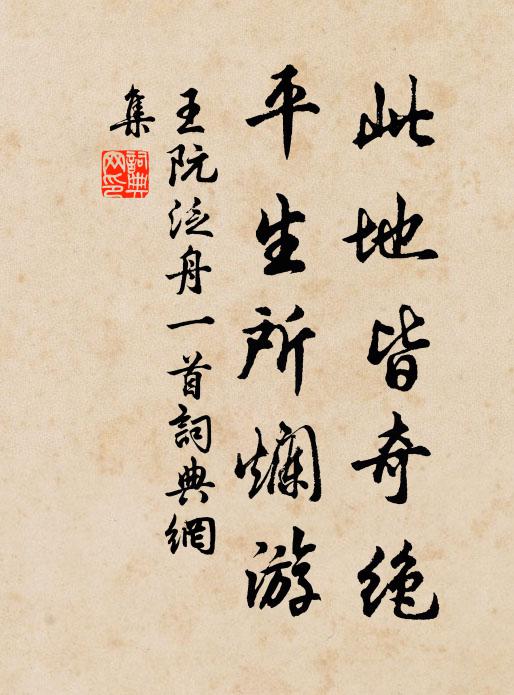 此地皆奇绝
平生所爛游
王阮泛舟一首詞典網
集
詞典
网印